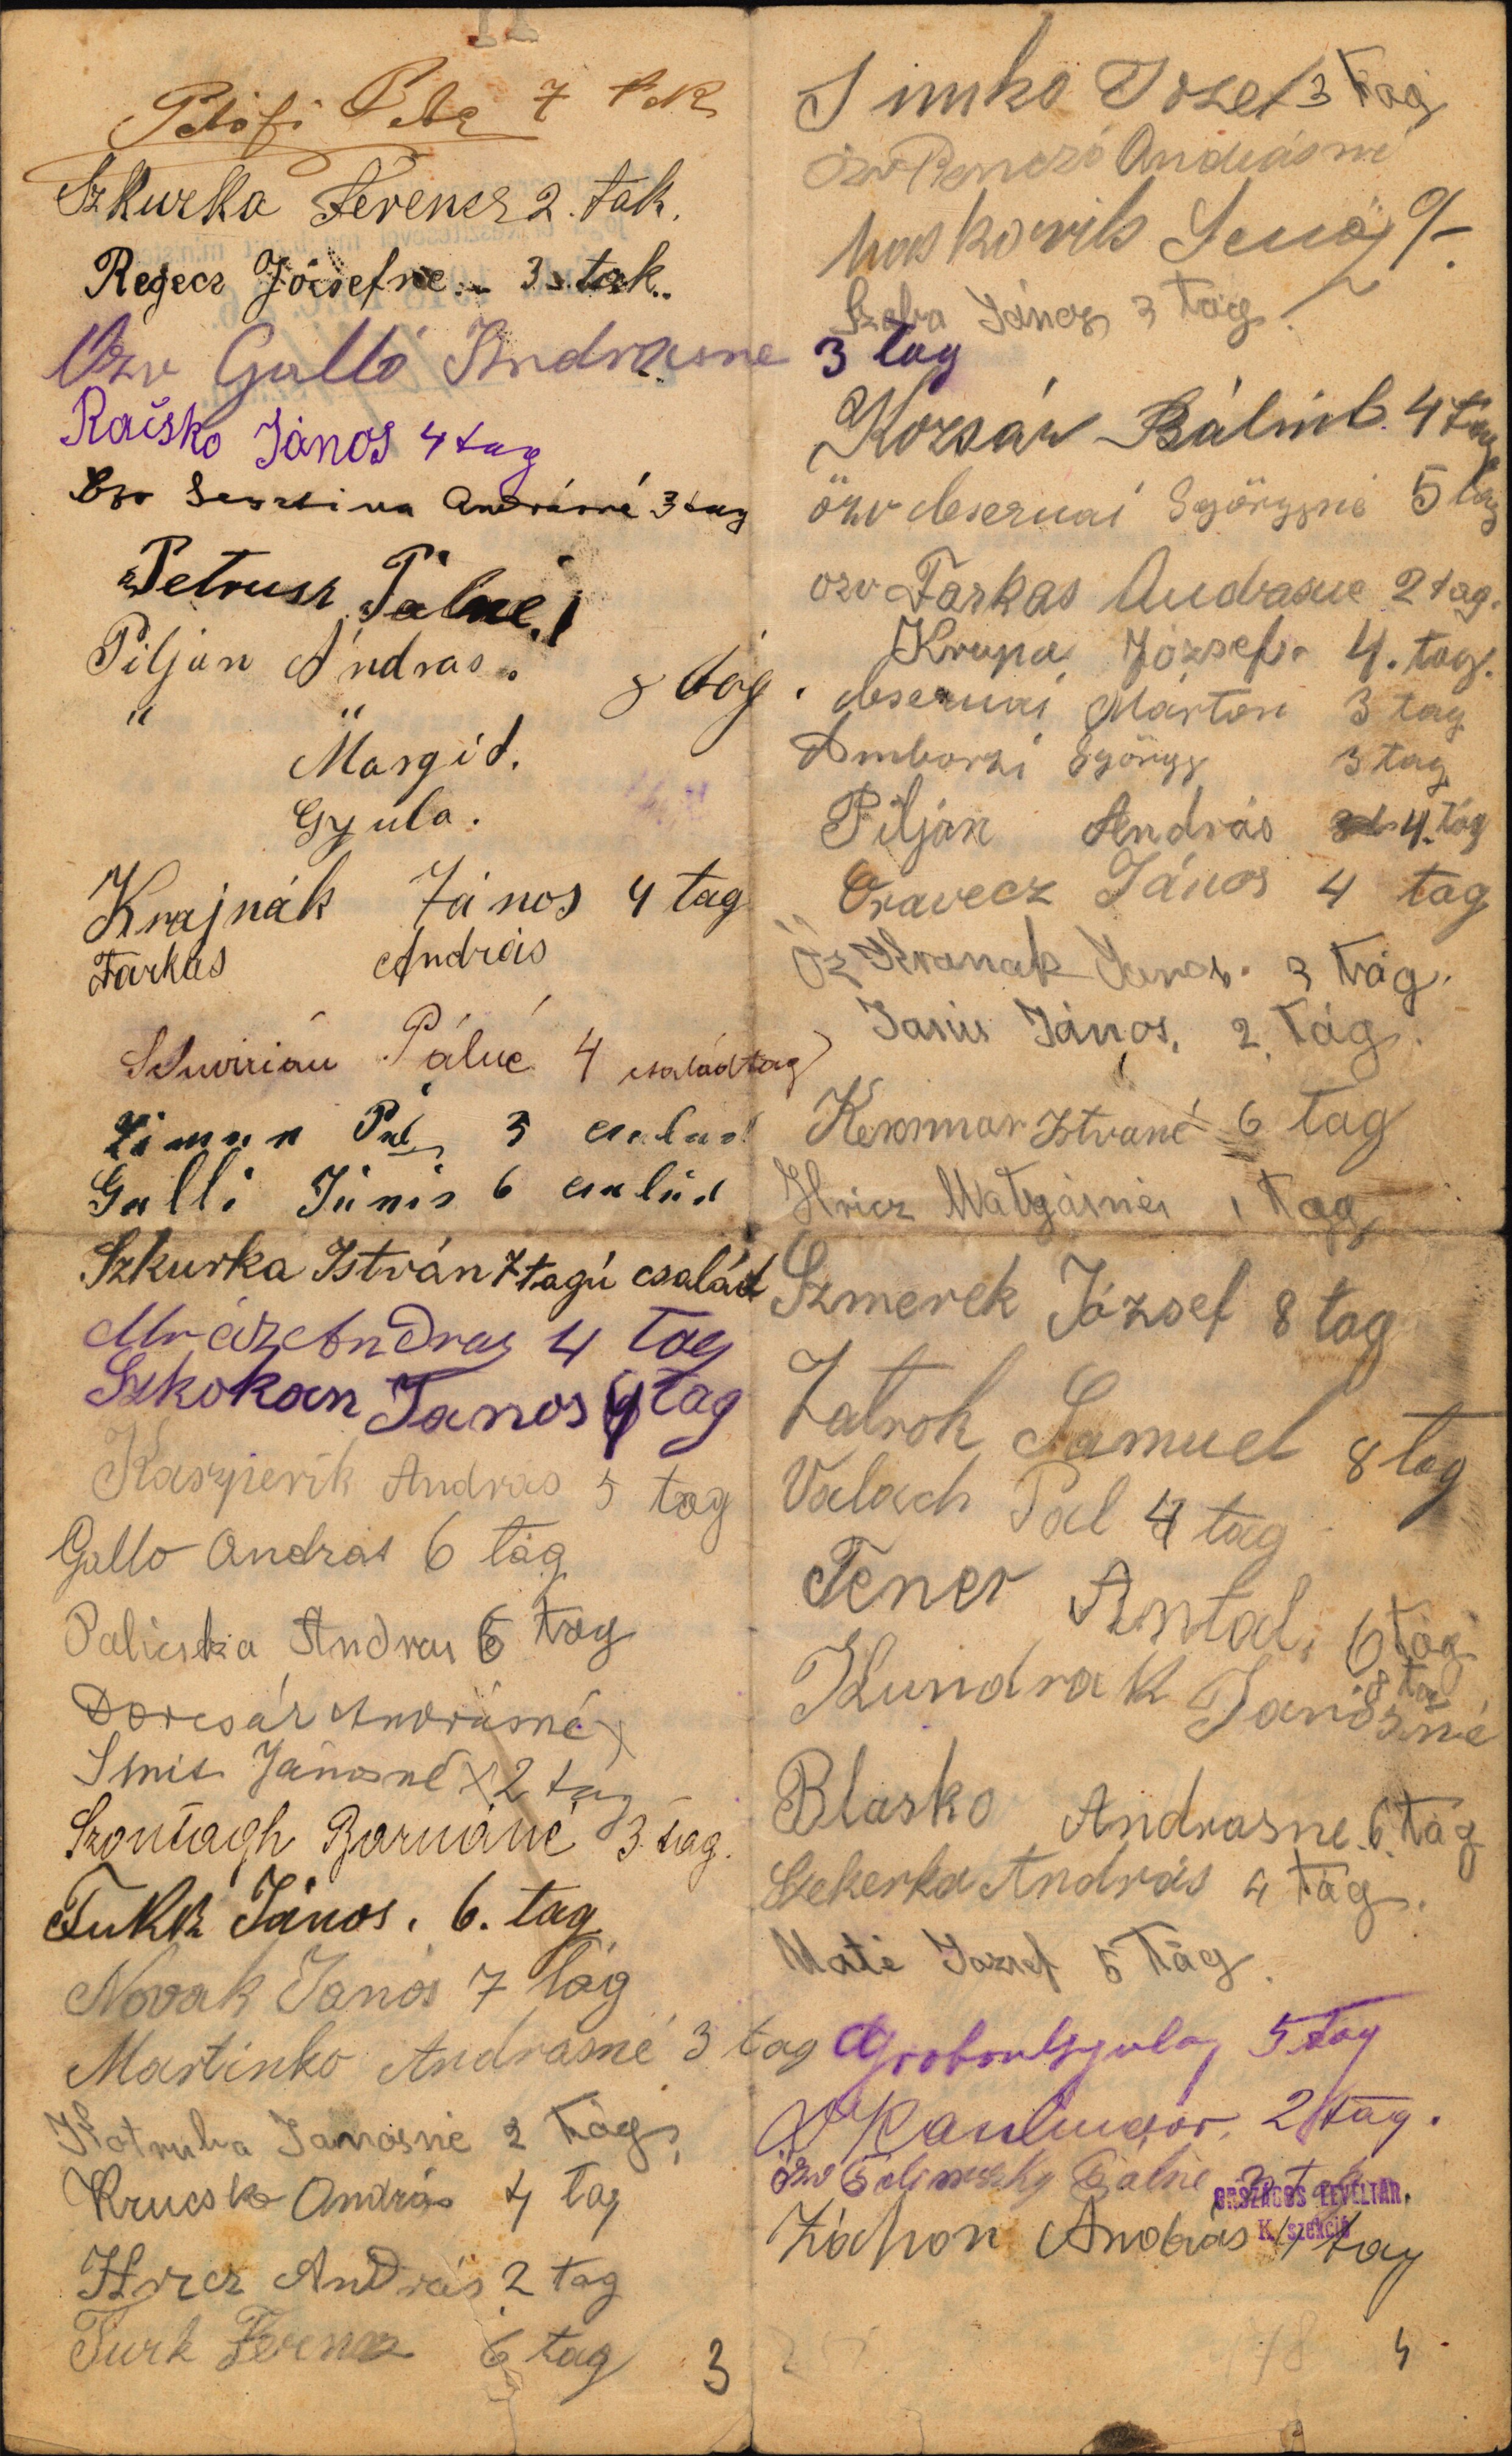 Petőfi 7 tak
Szkurka Ferencz 2. tak.
Regecz Józsefne 3. tak.
Özv Galló Andrasne 3 tag
Račsko János 4 tag
Özv Andrásné 3 tag
Petrusz Pálné
Pilján András. 8 tág.
" "
Margid.
Gyula.
Krajnák János 4 tag
Farkas András
Pálné 4 családtag
Liman Pál 3 család
Galli János 6 család
Szkurka István 7 tagú család
Mráz András 4 tag
Szkokan Janos 4 tag
Kaszperik András 5 tag
Gallo Andras 6 tág
Palicska Andras 6 tag
Dorcsár Andrásné
Smis Jánosné x 2 tág
Szontágh Barnáné 3 tag.
Tukk János. 6. tag
Novak Janos 7 tág
Martinko Andrasné 3 tag
Kotruba Janosné 2 tág
Krucsko András 4 tag
Hricz András 2 tag
Turk Ferencz 6 tag
3
Simko Jozef 3 tag
özv Benczó Andrásné
Moskovits Jenő 9/-
Szaba János 3 tag.
Kozsár Bálint. 4 tag
özv Cseruai Györgyné 5 tag
özv Farkas Andrasne 2 tag.
Krupa József. 4. tag.
Cseruai Márton 3 tag
Amborzi György 3 tag
Pilján András 4. tág
Oravecz János 4 tag
Öz Kranak Janos. 3 tág.
János, 2, tág.
Kexmar Istvané 6 tag
Hricz Matyásné 1 tag
Szmerek József 8 tag
Zatrok Samuel 8 tag
Valach Pal 4 tag
Fener Antal, 6 tág
Kundrak Janosné 8 tag
Blasko Andrasne 6. tág
Szekerka András 4 tág.
Maté József 5 tág.
Gyula 5 tag
2 tag.
özv Pálné
ORSZÁGOS LEVÉLTÁR.
K szekció
Záhon András 4 tag
4